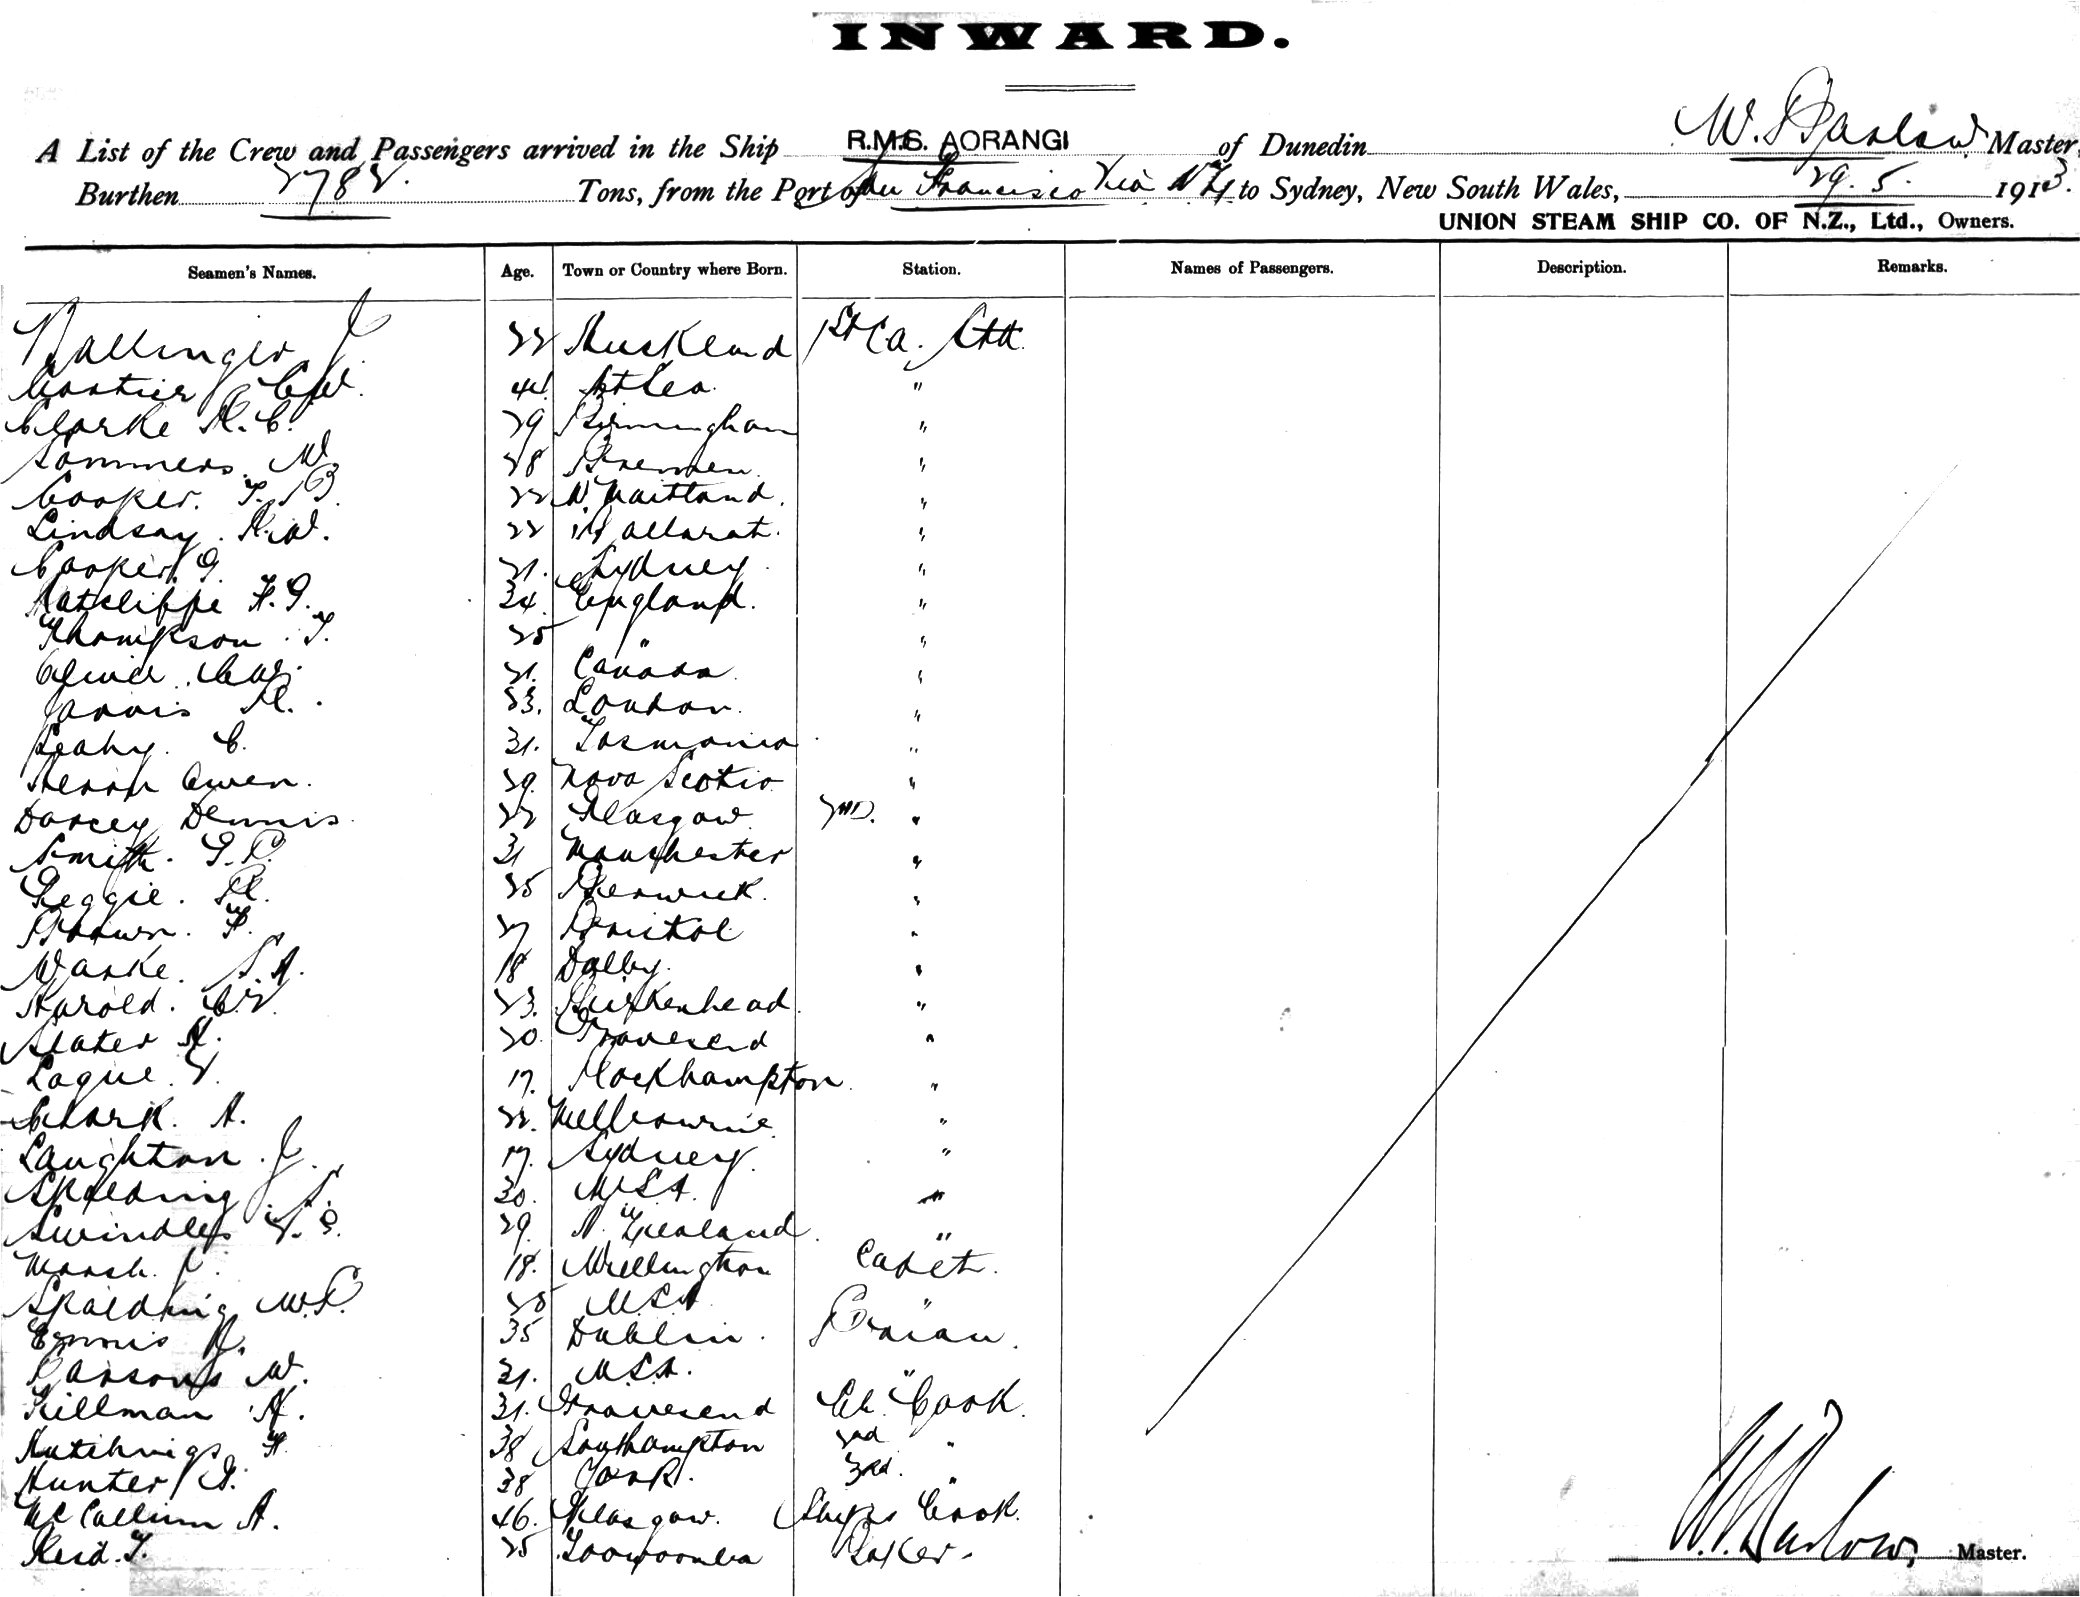 INWARD.
A List of the Crew and Passengers arrived in the Ship R.M.S. AORANGI of Dunedin W. Barlow Master,
Burthen 2782. Tons, from the Port of San Francisco via NZ to Sydney, New South Wales, 29.5. 1913.
UNION STEAM SHIP CO. OF N.Z., Ltd., Owners.
Seamen's Names. Age. Town or Country where Born. Station. Names of Passengers. Description. Remarks.
Ballinger J 22 Auckland 1st Ca. Att.
CW. 44 At Sea "
Clarke A.C. 29 Birmingham "
Sommers W 28 Bremen "
Cooper. T.B. 22 W. Maitland. "
Lindsay. A.W. 22 Ballarat. "
Cooper. G. 21. Sydney "
Ratcliffe F.G. 34. England. "
Thompson. T. 25 " "
Oliver. CW. 21. Canada "
Jarvis A. 23. London. "
Leahy. C. 31. Tasmania "
Owen. 29. Nova Scotia "
Darcey Dennis 22 Glasgow. 2ND. "
Smith. G.P. 31 Manchester "
Reggie. R. 25 Berwick. "
Brown. F. 27 Bristol "
Warke. S.A. 18 Dalby. "
Harold. C.V. 23. Birkenhead "
Slater H. 20. Gravesend "
Logue. V. 17. Rockhampton "
Clark. A. 22. Melbourne "
Laughton. J. 17. Sydney. "
Spalding J.S. 30. U.S.A. "
Swindley 29. N. Zealand "
Marsh. J. 18. Wellington Cadet.
Spalding W.P. 25 U.S.A. "
Ennis R. 35 Dublin. Pration.
Parsons W. 21. U.S.A. "
Tillman H. 31. Gravesend Ch. Cook.
Hutchings F. 38 Southampton 2nd "
Hunter G. 38 York. 3rd. "
McCallum A. 46. Glasgow. Ships Cook.
Reid. T. 25 Toowoomba Baker.
W. Barlow, Master.